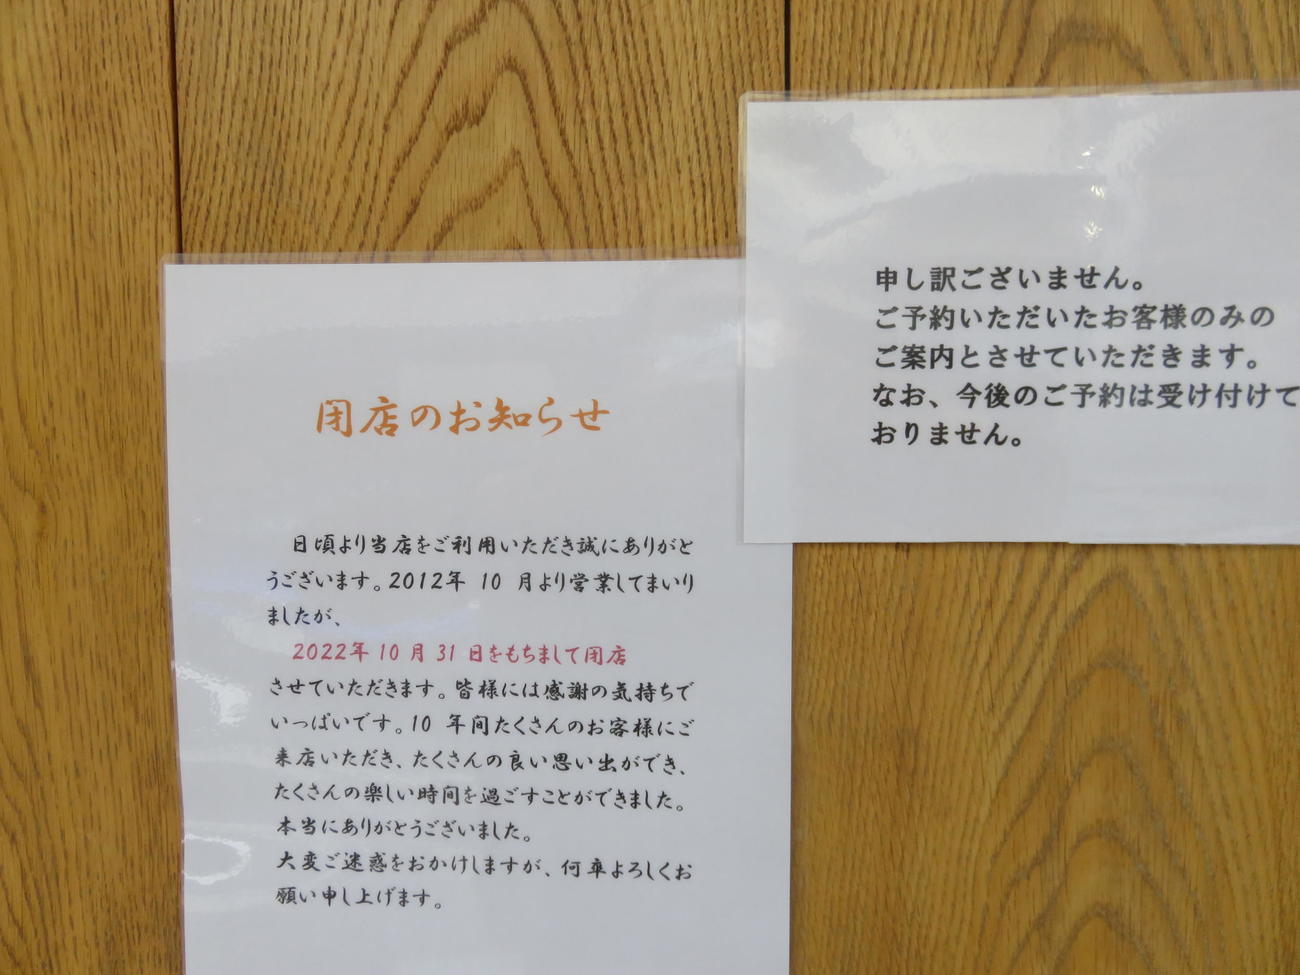 閉店のお知らせ
日頃より当店をご利用いただき誠にありがと
うございます。2012年 10 月より営業してまいり
ましたが、
2022年 10 月 31 日をもちまして閉店
させていただきます。皆様には感謝の気持ちで
いっぱいです。10 年間たくさんのお客様にご
来店いただき、たくさんの良い思い出ができ、
たくさんの楽しい時間を過ごすことができました。
本当にありがとうございました。
大変ご迷惑をおかけしますが、何卒よろしくお
願い申し上げます。
申し訳ございません。
ご予約いただいたお客様のみの
ご案内とさせていただきます。
なお、今後のご予約は受け付けて
おりません。